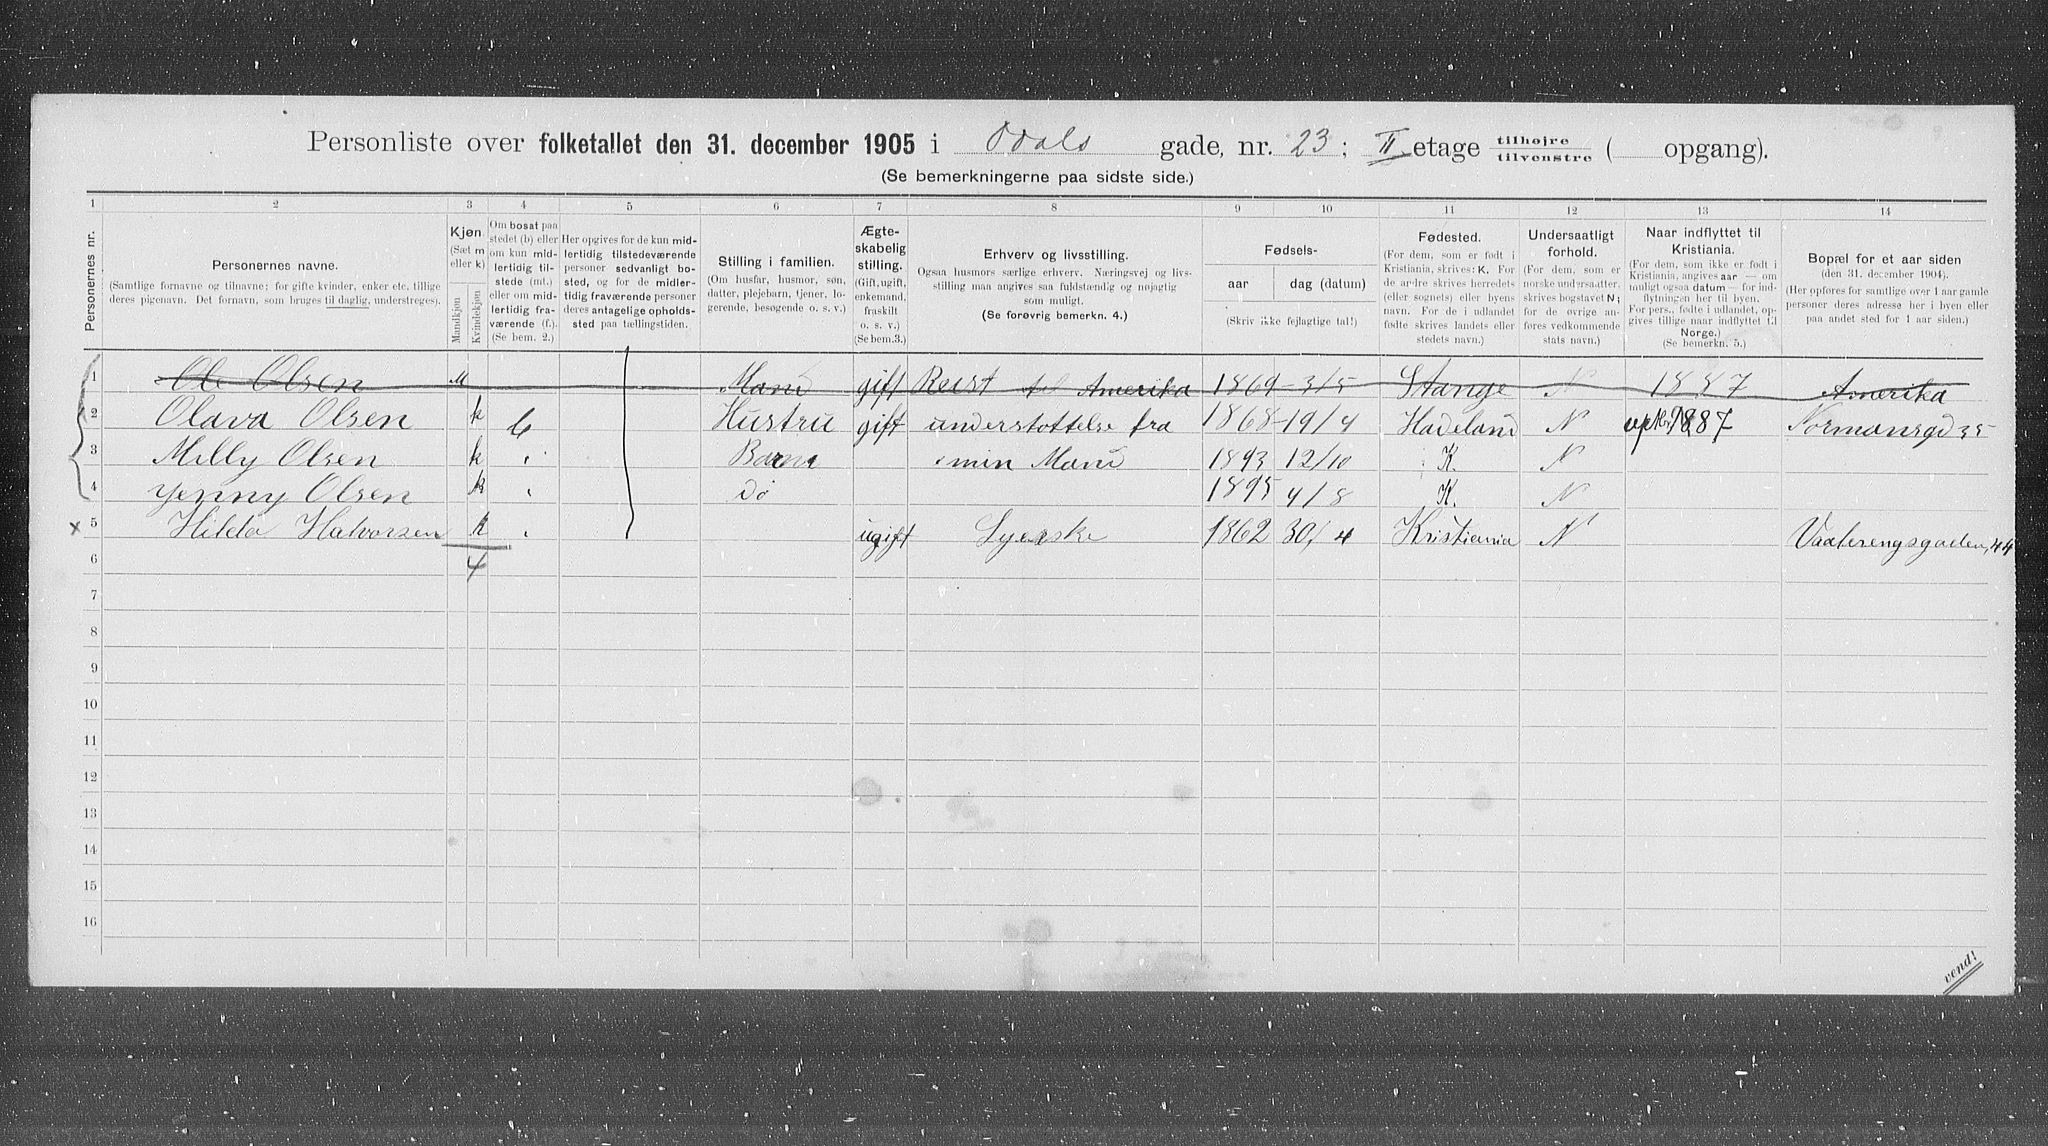 Personliste over folketallet den 31. december 1905 i Odals gade, nr. 23; II etage tilhøjre tilvenstre ( opgang).
(Se bemerkningerne paa sidste side.)
1 2 3 4 5 6 7 8 9 10 11 12 13 14
Personernes nr.
Personernes navne.
(Samtlige fornavne og tilnavne; for gifte kvinder, enker etc. tillige
deres pigenavn. Det fornavn, som bruges til daglig, understreges).
Kjøn.
(Sæt m
eller k)
Mandkjøn
Kvindekjøn
Om bosat paa
stedet (b) eller
om kun mid-
lertidig til-
stede (mt.)
eller om mid-
lertidig fra-
værende (f.).
(Se bem. 2.)
Her opgives for de kun mid-
lertidig tilstedeværende
personer sedvanligt bo-
sted, og for de midler-
tidig fraværende personer
deres antagelige opholds-
sted paa tællingstiden.
Stilling i familien.
(Om husfar, husmor, søn,
datter, plejebarn, tjener, lo-
gerende, besøgende o. s. v.)
Ægte-
skabelig
stilling.
(Gift, ugift,
enkemand,
fraskilt
o. s. v.)
(Se bem.3.)
Erhverv og livsstilling.
Ogsaa husmors særlige erhverv. Næringsvej og livs-
stilling maa angives saa fuldstændig og nøjagtig
som muligt.
(Se forøvrig bemerkn. 4.)
Fødsels-
aar dag (datum)
(Skriv ikke fejlagtige tal!)
Fødested.
(For dem, som er født i
Kristiania, skrives: K. For
de andre skrives herredets
(eller sognets) eller byens
navn. For de i udlandet
fødte skrives landets eller
stedets navn.)
Undersaatligt
forhold.
(For dem, som er
norske undersaatter,
skrives bogstavet N;
for de øvrige an-
føres vedkommende
stats navn.)
Naar indflyttet til
Kristiania.
(For dem, som ikke er født i
Kristiania, angives aar — om
muligt ogsaa datum — for ind-
flytningen her til byen.
For pers., fødte i udlandet, op-
gives tillige naar indflyttet til
Norge.)
(Se bemerkn. 5.)
Bopæl for et aar siden
(den 31. december 1904).
(Her opføres for samtlige over 1 aar gamle
personer deres adresse her i byen eller
paa andet sted for 1 aar siden.)
1 Ole Olsen M Mand gift Reist til Amerika 1869 - 3/5 Stange N 1887 Amerika
2 Olava Olsen k b Hustru gift understottelse fra 1868 - 19/4 Hadeland N 1887 Normansgd 35
3 Milly Olsen k " Barn min Mand 1893 12/10 K. N
4 Yenny Olsen k " Do 1895 4/8 K. N
x 5 Hilda Halvorsen k " ugift Syerske 1862 30/4 Kristiania N Vaalerengsgaden, 44
6 4
7
8
9
10
11
12
13
14
15
16
vend!